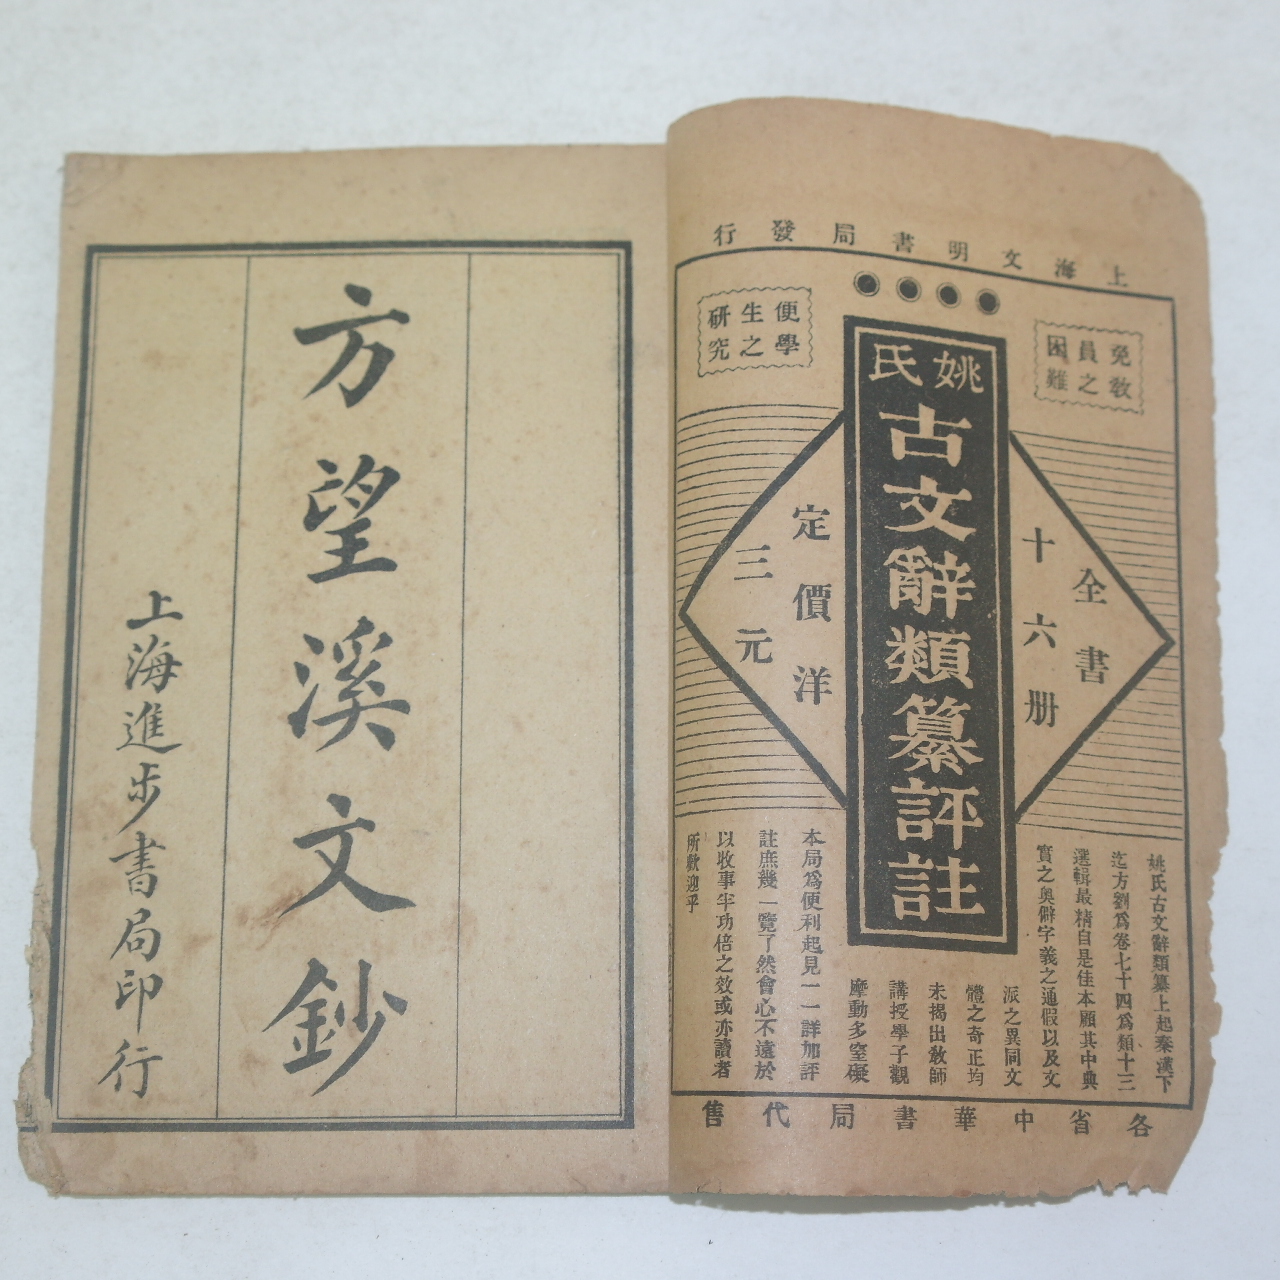 上海文明書局發行
免教
員之
困難
便學
生之
研究
姚氏
古文辭類纂評註
全書
十六册
定價洋
三元
姚氏古文辭類纂上起秦漢下
迄方劉爲卷七十四爲類十三
選輯最精自是佳本顧其中典
實之奥僻字義之通假以及文
派之異同文
體之奇正均
未揭出教師
講授學子觀
摩動多窒礙
本局爲便利起見一一詳加評
註庶幾一覽了然會心不遠於
以收事半功倍之效或亦讀者
所歡迎乎
各省中華書局代售
方望溪文鈔
上海進步書局印行